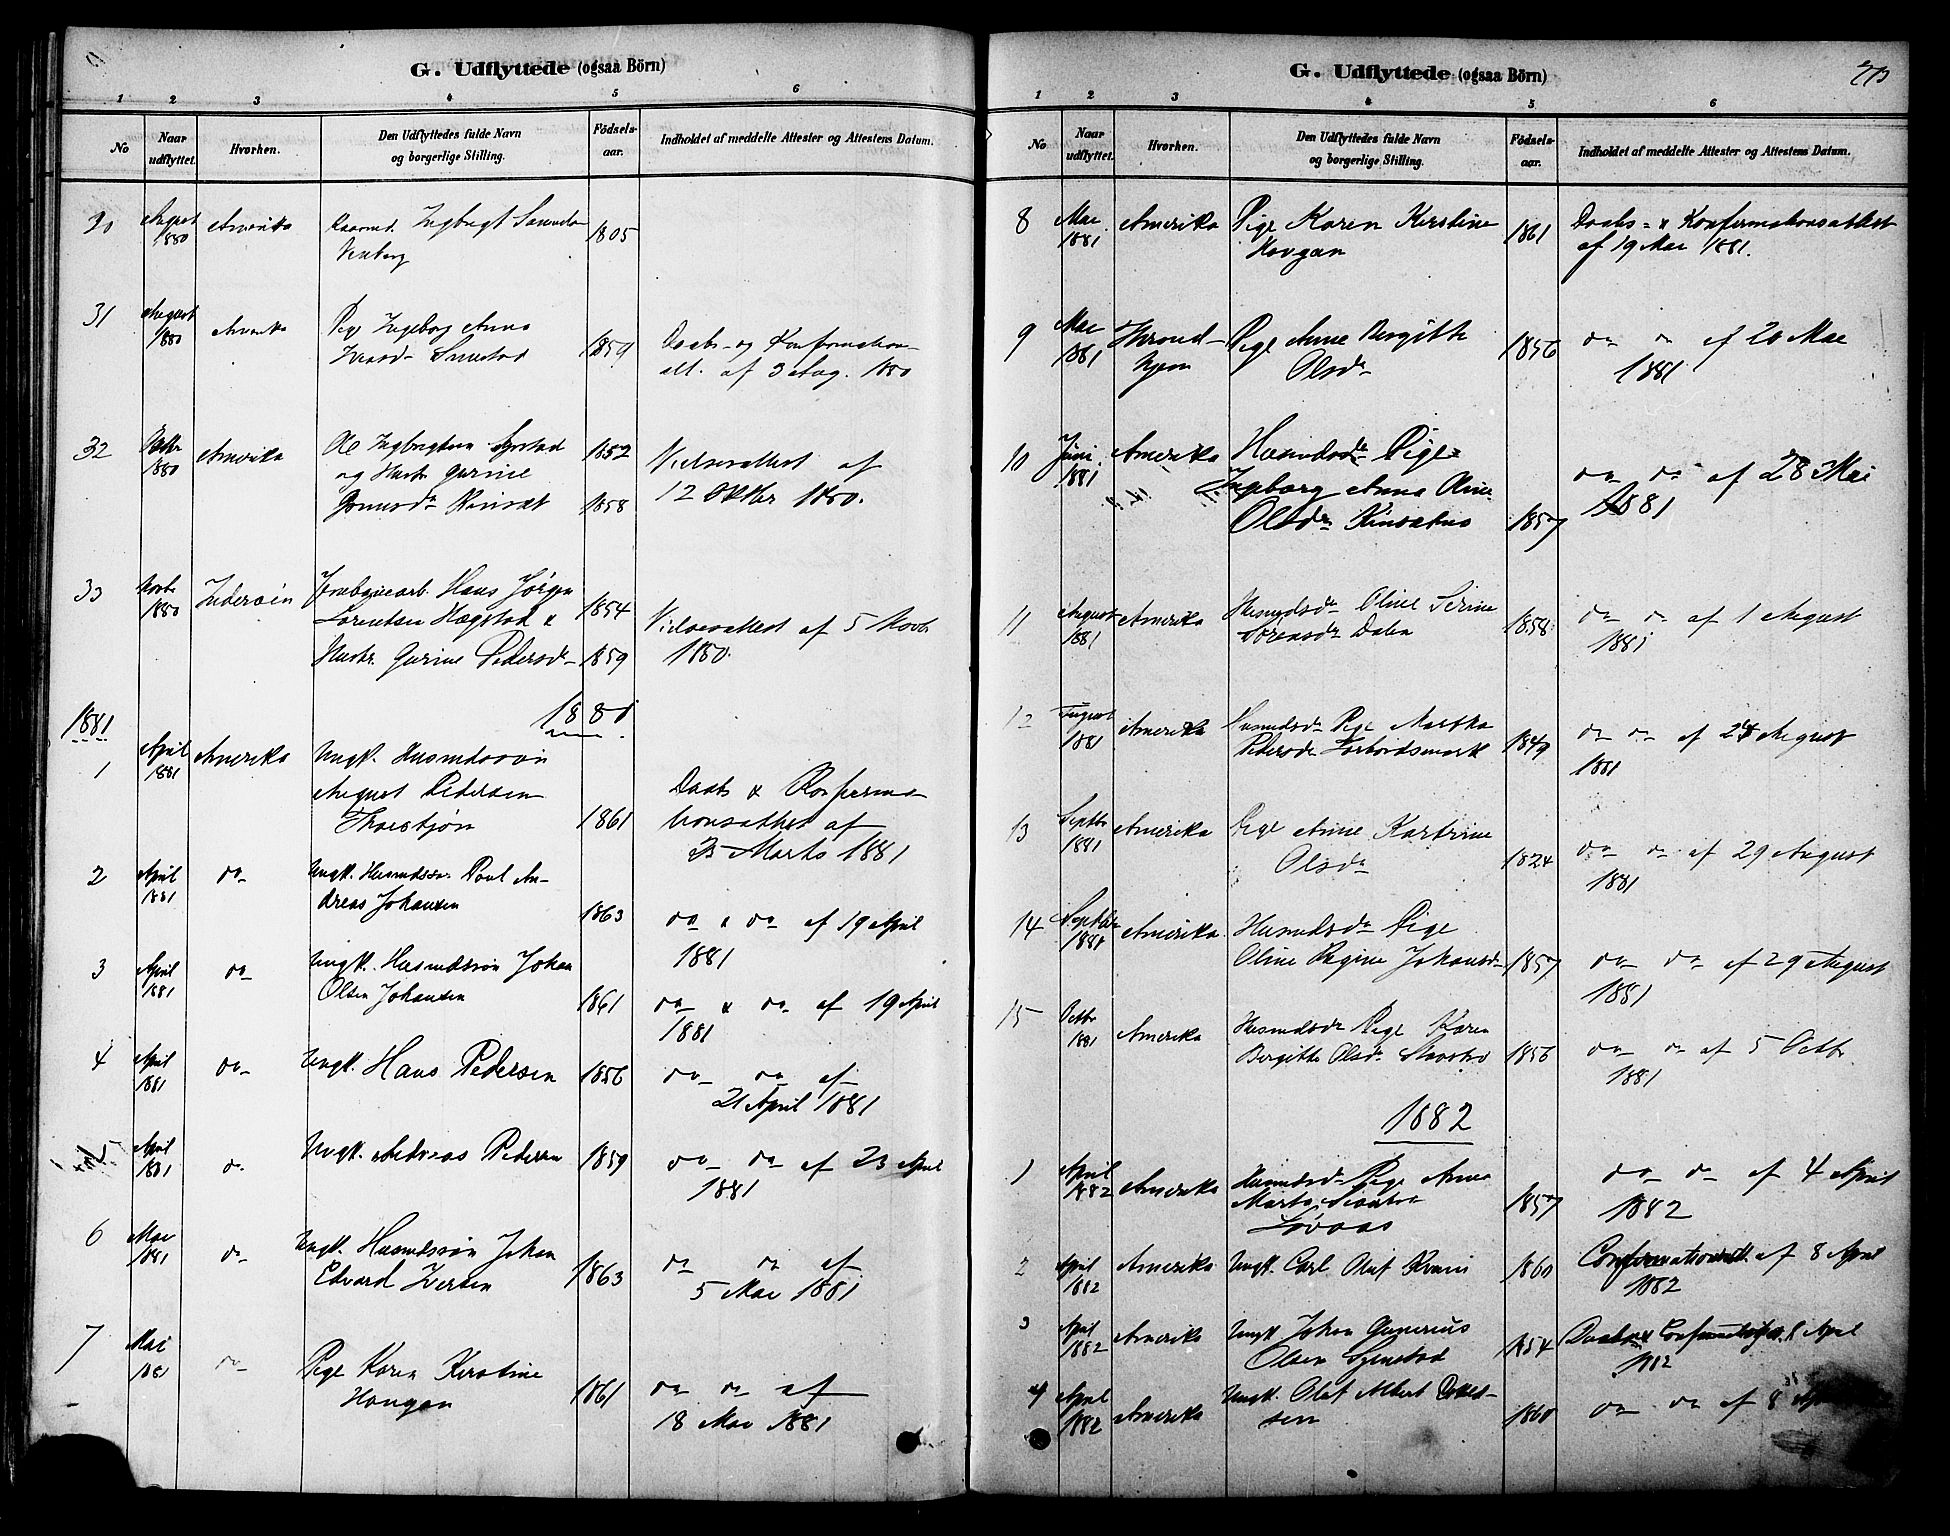 G. Udflyttede (ogsaa Börn)
1 2 3 4 5 6
No Naar udflyttet. Hvorhen. Den Udflyttedes fulde Navn og borgerlige Stilling. Födsels-aar. Indholdet af meddelte Attester og Attestens Datum.
30 August 1880 Amerika Ingbrigt 1805
31 August 1880 Amerika Pige Ingeborg Anna
1859 Daabs- og Konfirmations-
att. af 3 Aug. 1880
32 Octbr 1880 Amerika Ole Ingbrigtsen 1852
og Hustr. Gurine Vielsesattest af
1858 12 Oktbr 1880.
33 Novbr 1880 Inderøen Hans Jørgen
Lorentsen Hægstad & 1854
Hustr. Gurine Pedersdr 1859 Vielsesattest af 5 Novbr
1880.
1881
1881
1 April 1881 Amerika Ungk. Husmdssøn
August Pedersen
1861 Daabs & Konfirma-
tionsattest af
23 Marts 1881
2 April 1881 do Ungk. Husmdssøn Povl An-
dreas Johansen 1863 do & do af 19 April
1881
3 April 1881 do Ungk. Husmdssøn Johan
Olsen Johansen 1861 do & do af 19 April
1881
4 April 1881 do Ungk. Hans Pedersen 1856 do do af
21 April 1881
5 April 1881 do Ungk. Andreas Pedersen 1859 do do af 23 April
1881
6 Mai 1881 do Ungk. Husmdssøn Johan
Edvard Iversen 1863 do do af
5 Mai 1881
7 Mai 1881 do Pige Karen Kirstine
Hougan 1861 do do af
18 Mai 1881
G. Udflyttede (ogsaa Börn)
1 2 3 4 5 6
No Naar udflyttet. Hvorhen. Den Udflyttedes fulde Navn og borgerlige Stilling. Födsels-aar. Indholdet af meddelte Attester og Attestens Datum.
8 Mai 1881 Amerika Pige Karen Kirstine
Hovgan 1861 Daabs- & Konfirmationsattest
af 19 Mai 1881.
9 Mai 1881 Throndhjem Pige Anne Bergitte
Olsdr 1856 do do af 20 Mai
1881
10 Juni 1881 Amerika Husmdsdr Pige
Ingeborg Anna Oline
Olsdr 1857 do do af 28 Mai
1881
11 August 1881 Amerika Husmdsdr Oline Serine
Sørensdr Dalen 1858 do do af 1 August
1881
12 August 1881 Amerika Husmdsdr Pige Martha
Pedersdr Forbordsmark 1849 do do af 24 August
1881
13 Septbr 1881 Amerika Pige Anne Kartrine
Olsdr 1824 do do af 29 August
1881
14 Septbr 1881 Amerika Husmdsdr Pige
Oline Regine Johansdr 1857 do do af 29 August
1881
15 Octbr 1881 Amerika Husmdsdr Pige Karen
Bergitte Olsdr 1856 do do af 5 Octbr
1881
1882
1 April 1882 Amerika Husmdsdr Pige Anne
Marta
Løvaas 1857 do do af 4 April
1882
2 April 1882 Amerika Ungk. Carl Oluf 1860 af 8 April
1882
3 April 1882 Amerika Ungk Johan Gunerius
Olsen 1854 8 April
1882
4 April 1882 Amerika Ungk. Olaf Albert
sen 1860 do do af 8 April